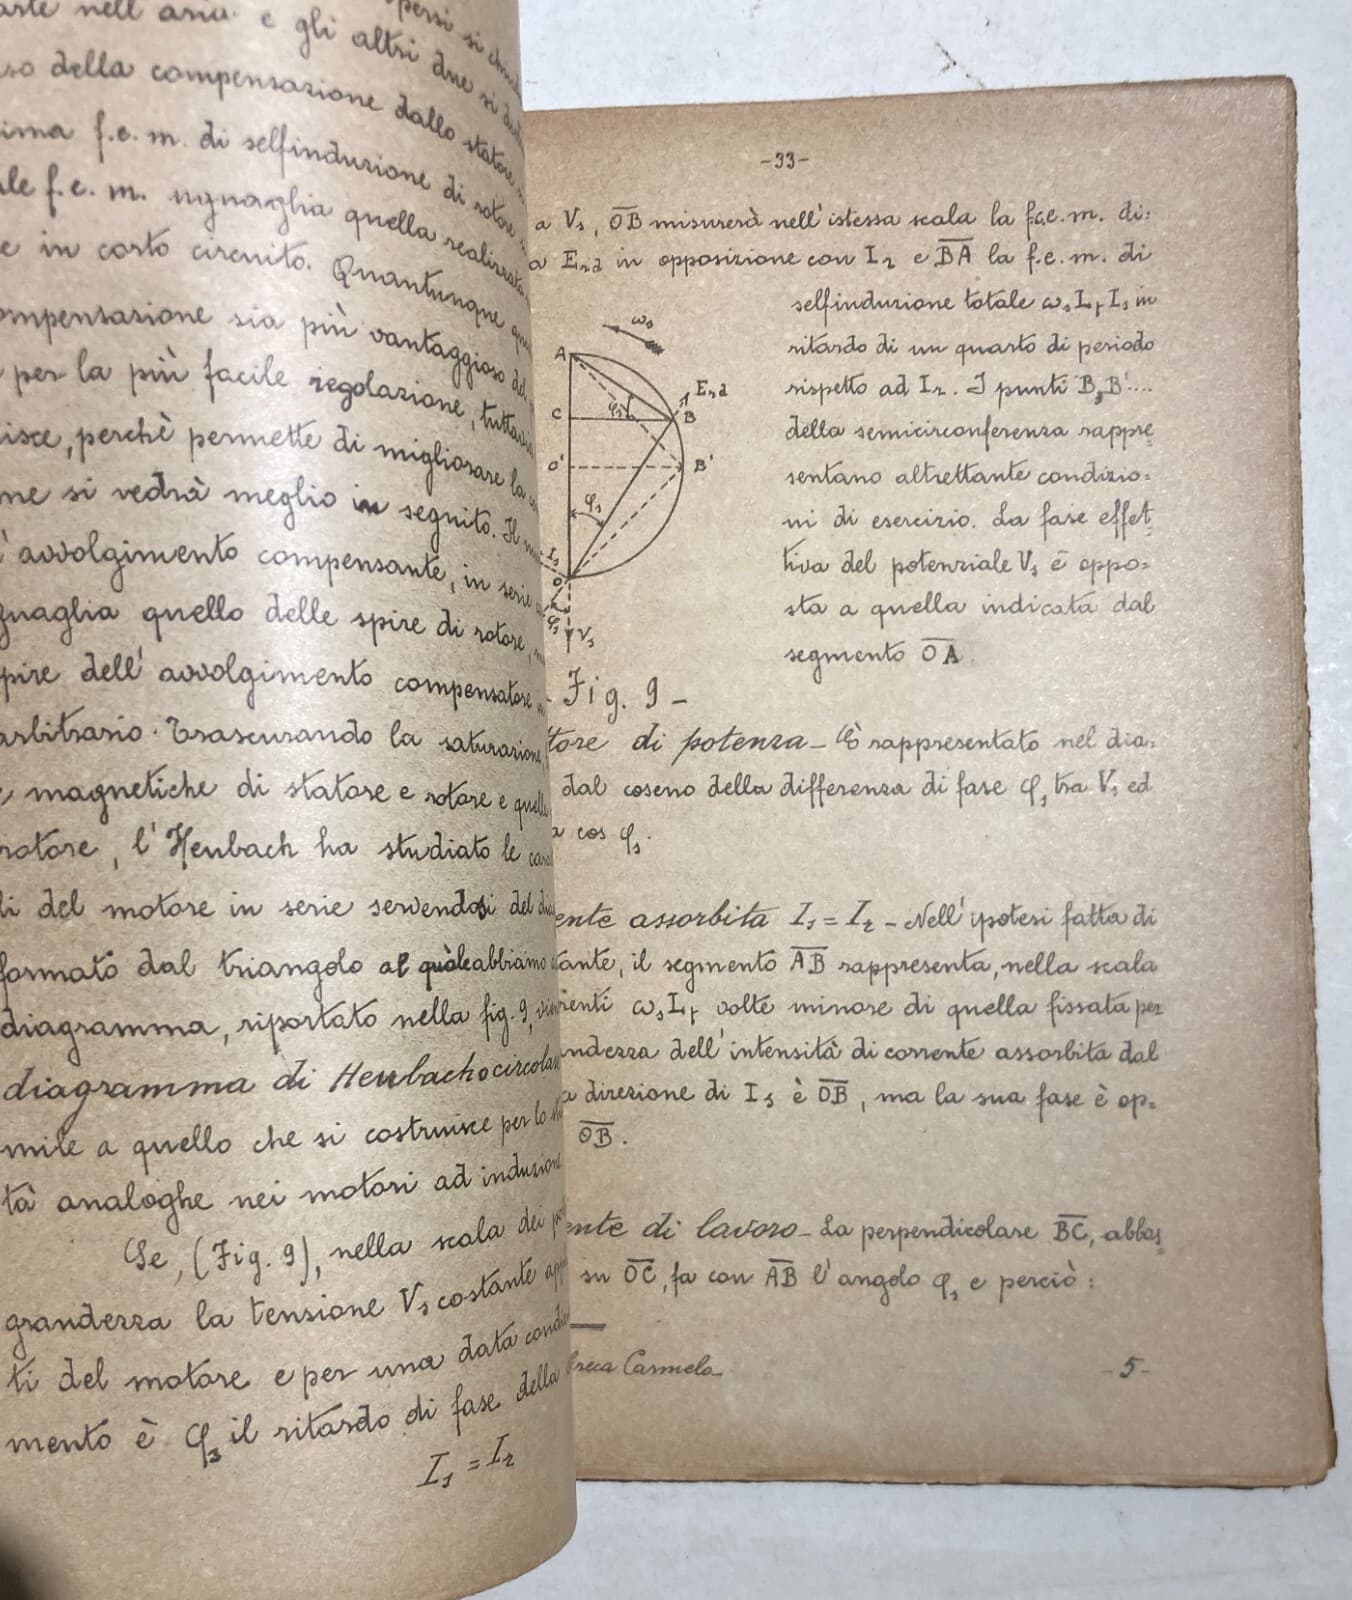 e gli altri due si
della compensazione dallo statore
f.e.m. di selfinduzione di rotore
f.e.m. uguaglia quella realizzata
e in corto circuito. Quantunque
sia più vantaggioso del
per la più facile regolazione, tuttavia
perchè permette di migliorare la
si vedrà meglio in seguito. Il
avvolgimento compensante, in serie
quello delle spire di rotore,
dell' avvolgimento compensatore
arbitrario. Trascurando la saturazione
magnetiche di statore e rotore e quelle
rotore, l'Heubach ha studiato le
del motore in serie servendosi del
formato dal triangolo al quale abbiamo
diagramma, riportato nella fig. 9,
diagramma di Heubach o
a quello che si costruisce per lo
tà analoghe nei motori ad induzione
Se, (Fig. 9), nella scala dei
grandezza la tensione V₁ costante
ti del motore e per una data
mento è φ₁ il ritardo di fase della
I₁ = I₂
-33-
a V₁, OB misurerà nell'istessa scala la f.c.e.m. di=
E₂d in opposizione con I₂ e BA la f.e.m. di
selfinduzione totale ω₁LₜI₁ in
ritardo di un quarto di periodo
rispetto ad I₂. I punti B, B'....
della semicirconferenza rappre=
sentano altrettante condizio=
ni di esercizio. La fase effet=
tiva del potenziale V₁ è oppo=
sta a quella indicata dal
segmento OA.
ω₀
A
E₂d
φ₁
C
B
O'
B'
φ₁
I₁
O
φ₁
V₁
- Fig. 9 -
di potenza - È rappresentato nel dia=
dal coseno della differenza di fase φ₁ tra V₁ ed
cos φ₁.
assorbita I₁ = I₂ - Nell'ipotesi fatta di
il segmento AB rappresenta, nella scala
ω₁Lₜ volte minore di quella fissata per
dell'intensità di corrente assorbita dal
direzione di I₁ è OB, ma la sua fase è op=
OB.
di lavoro - La perpendicolare BC, abbas=
su OC, fa con AB l'angolo φ₁ e perciò:
Carmelo
-5-